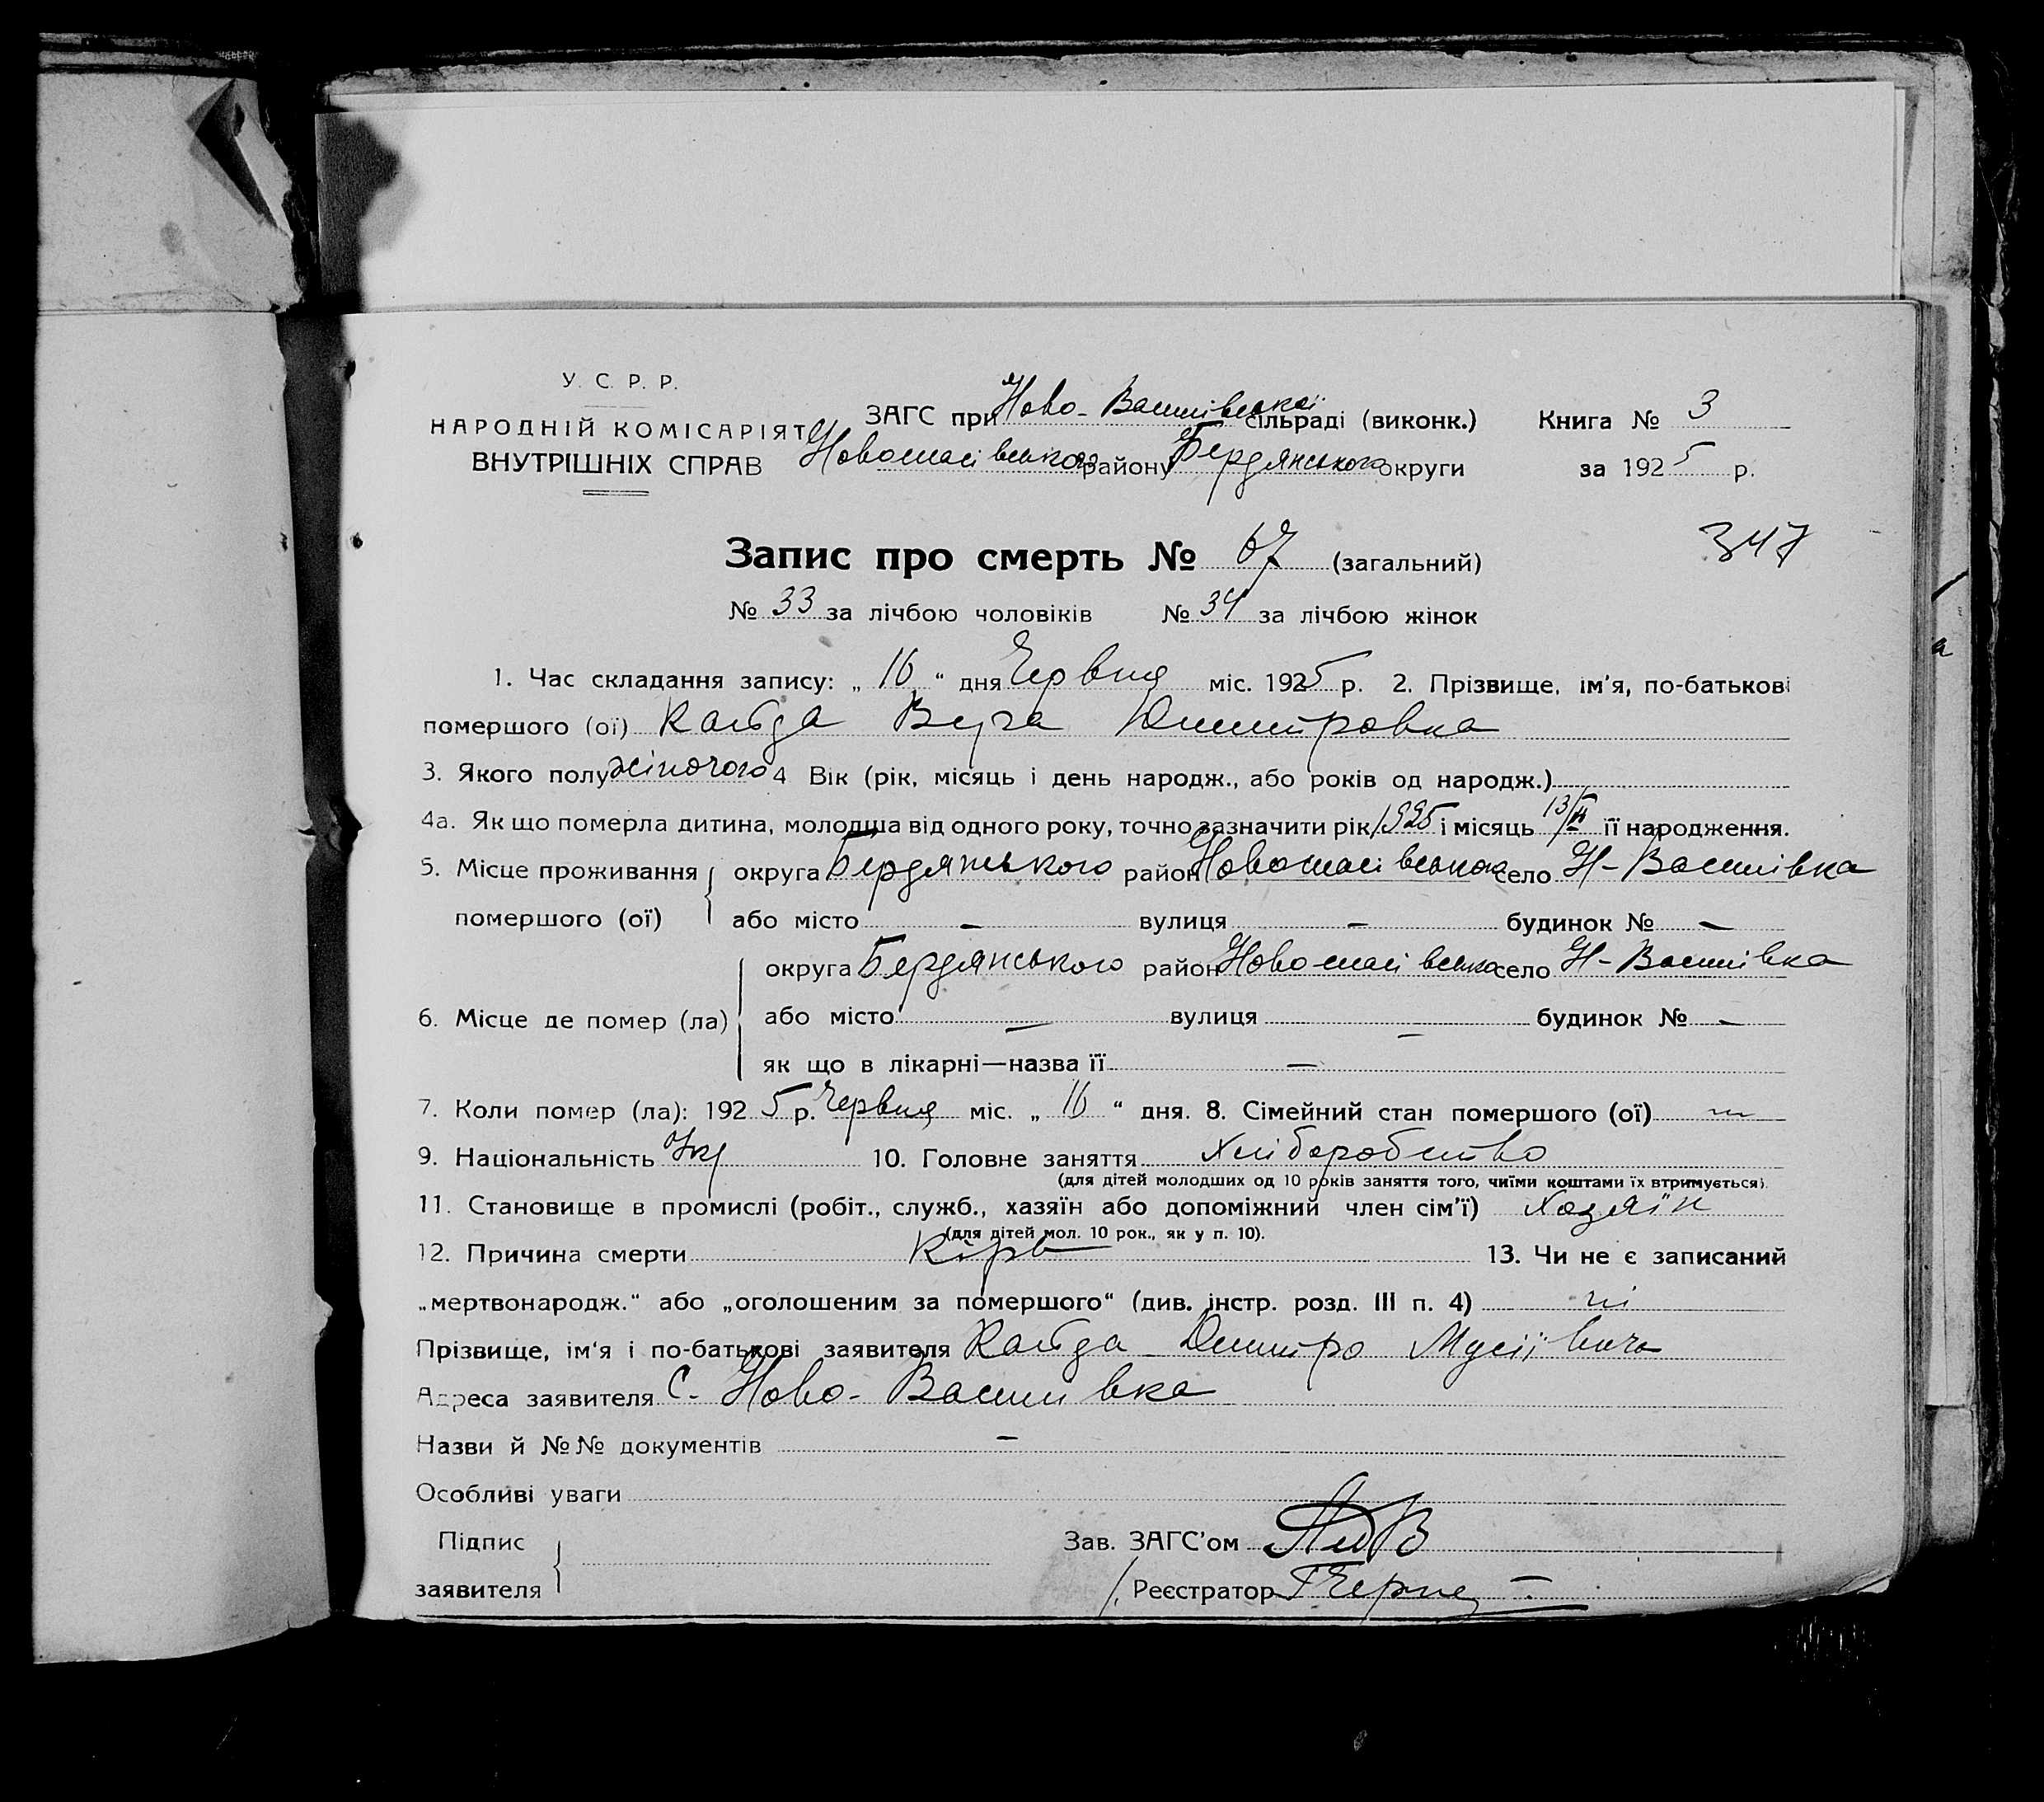 У. С. Р. Р.
НАРОДНІЙ КОМІСАРІЯТ
ВНУТРІШНІХ СПРАВ
ЗАГС при Ново-Василівській сільраді (виконк.) Книга № 3
Новоспасівського району Бердянського округи за 1925 р.
347
Запис про смерть № 67 (загальний)
№ 33 за лічбою чоловіків № 34 за лічбою жінок
1. Час складання запису: „ 16 “ дня Червня міс. 1925 р. 2. Прізвище, ім'я, по-батькові
помершого (ої) Кайда Вера Дмитровна
3. Якого полу жіночого 4 Вік (рік, місяць і день народж., або років од народж.)
4а. Як що померла дитина, молодша від одного року, точно зазначити рік 1925 і місяць 13/ІІ її народження.
5. Місце проживання округа Бердянського район Новоспасівського село Н-Василівка
помершого (ої) або місто — вулиця — будинок № —
округа Бердянського район Новоспасівсько село Н-Василівка
6. Місце де помер (ла) або місто — вулиця — будинок № —
як що в лікарні—назва її —
7. Коли помер (ла): 1925 р. Червня міс. „ 16 “ дня. 8. Сімейний стан помершого (ої)
9. Національність Укр 10. Головне заняття Хліборобство
(для дітей молодших од 10 років заняття того, чиїми коштами їх втримується).
11. Становище в промислі (робіт., служб., хазяїн або допоміжний член сім'ї) Хазяїн
(для дітей мол. 10 рок., як у п. 10).
12. Причина смерти Кірь 13. Чи не є записаний
„мертвонародж.“ або „оголошеним за помершого“ (див. інстр. розд. III п. 4) ні
Прізвище, ім'я і по-батькові заявителя Кайда Дмитро Мусіївич
Адреса заявителя С. Ново-Василівка
Назви й №№ документів —
Особливі уваги
Підпис
заявителя
Зав. ЗАГС'ом
Реєстратор